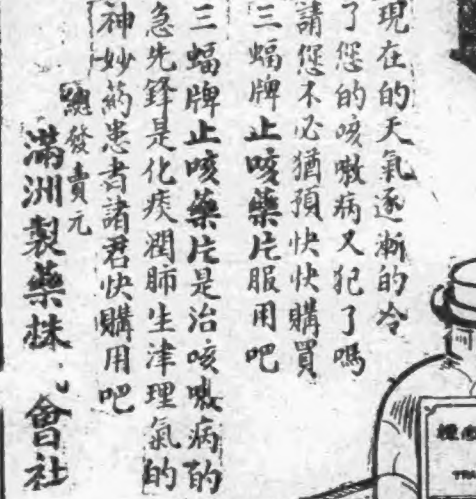 現在的天氣逐漸的冷
了您的咳嗽病又犯了嗎
請您不必猶預快快購買
三蝠牌止咳藥片服用吧
三蝠牌止咳藥片是治咳嗽病的
急先鋒是化痰潤肺生津理氣的
神妙葯患者諸君快購用吧
總發賣元
滿洲製藥株 會社